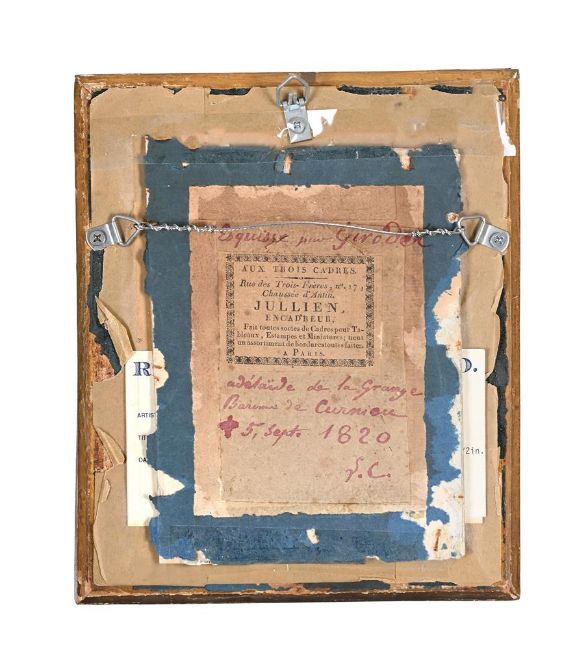 Esquisse par Giroden
AUX TROIS CADRES.
Rue des Trois-Frères, n°. 17,
Chaussée d'Antin.
JULLIEN,
ENCADREUR,
Fait toutes sortes de Cadres pour Ta-
bleaux, Estampes et Miniatures; tient
un assortiment de bordures toutes faites.
A PARIS.
R
D.
ARTIS
TIT
DA
/2in.
adélaïde de la Grange
Baronne de Curnieu
✝ 5, Sept. 1820